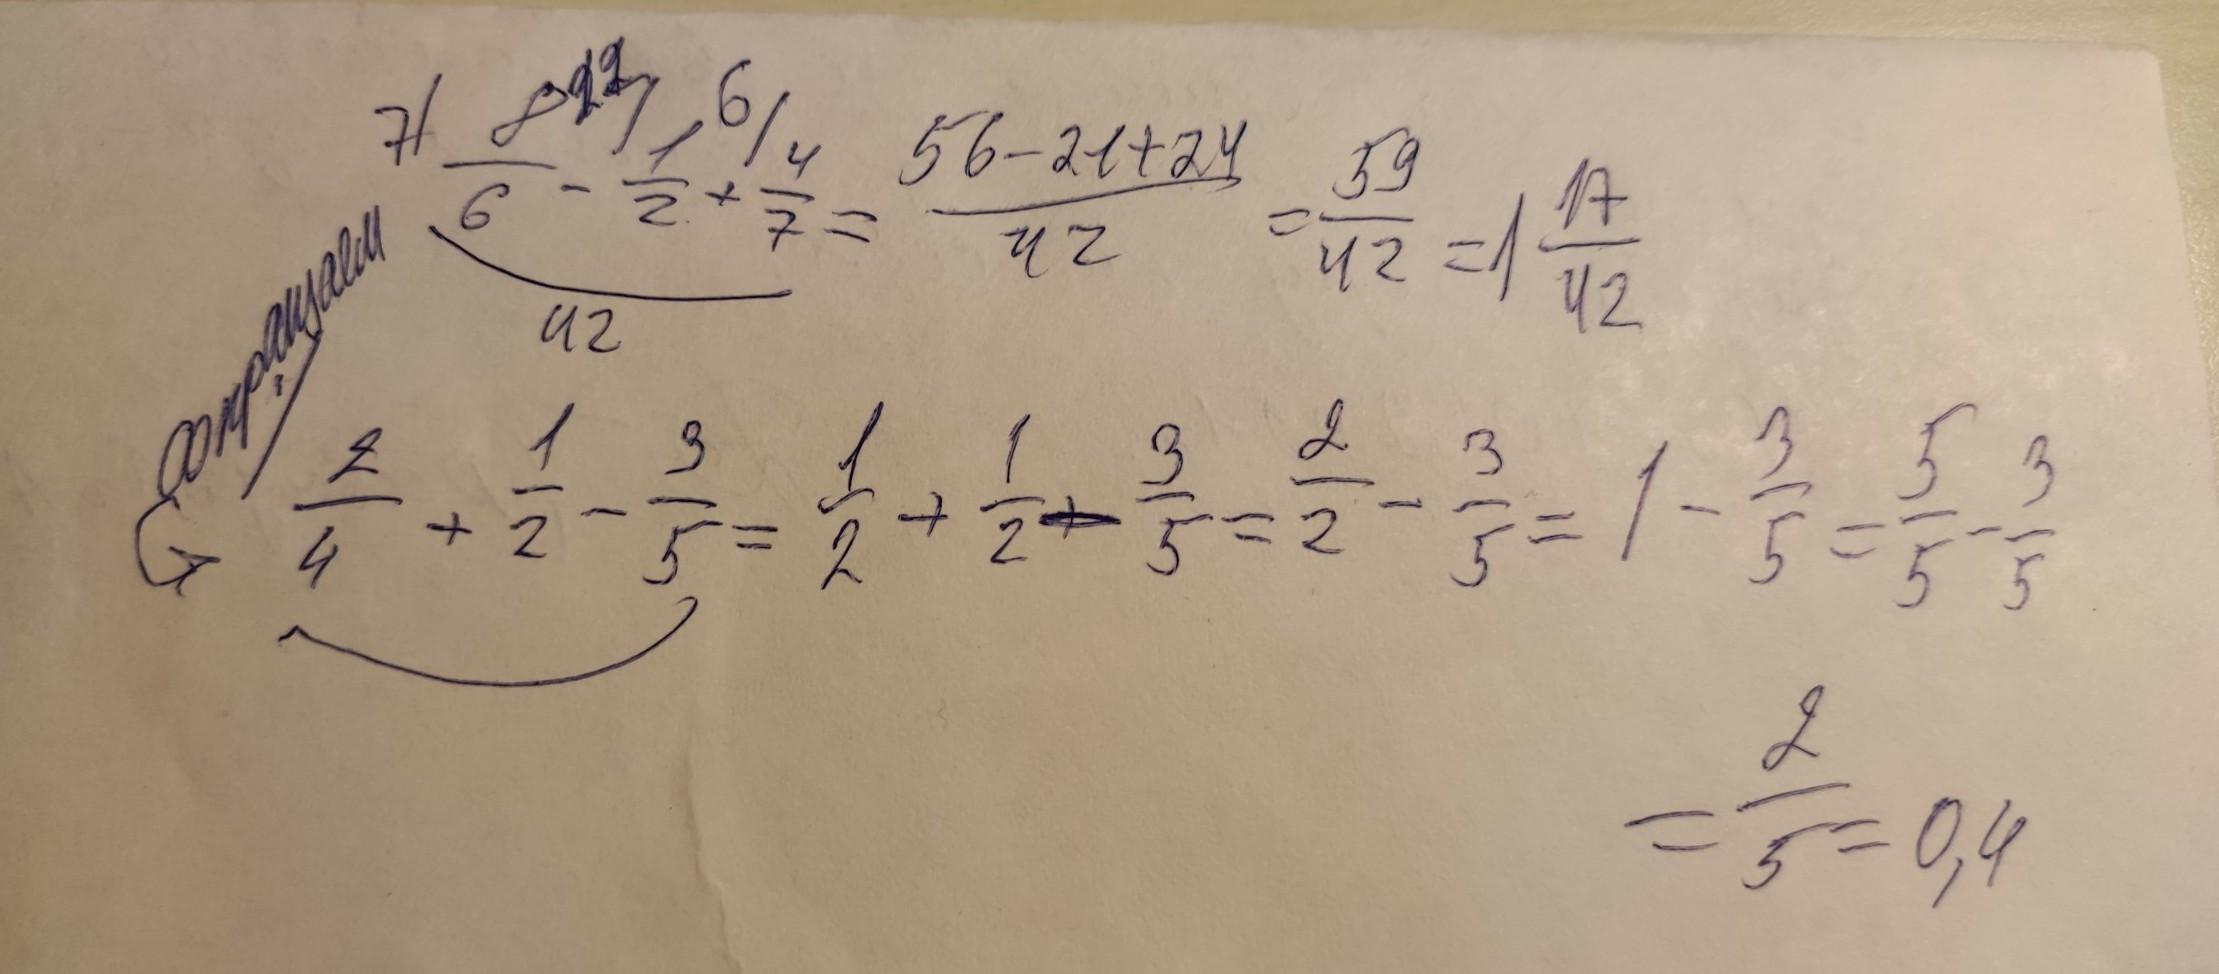 7/ 8/6 - 21/ 1/2 + 6/ 4/7 = (56-21+24)/42 = 59/42 = 1 17/42
42
сокращаем
2/4 + 1/2 - 3/5 = 1/2 + 1/2 - 3/5 = 2/2 - 3/5 = 1 - 3/5 = 5/5 - 3/5
= 2/5 = 0,4